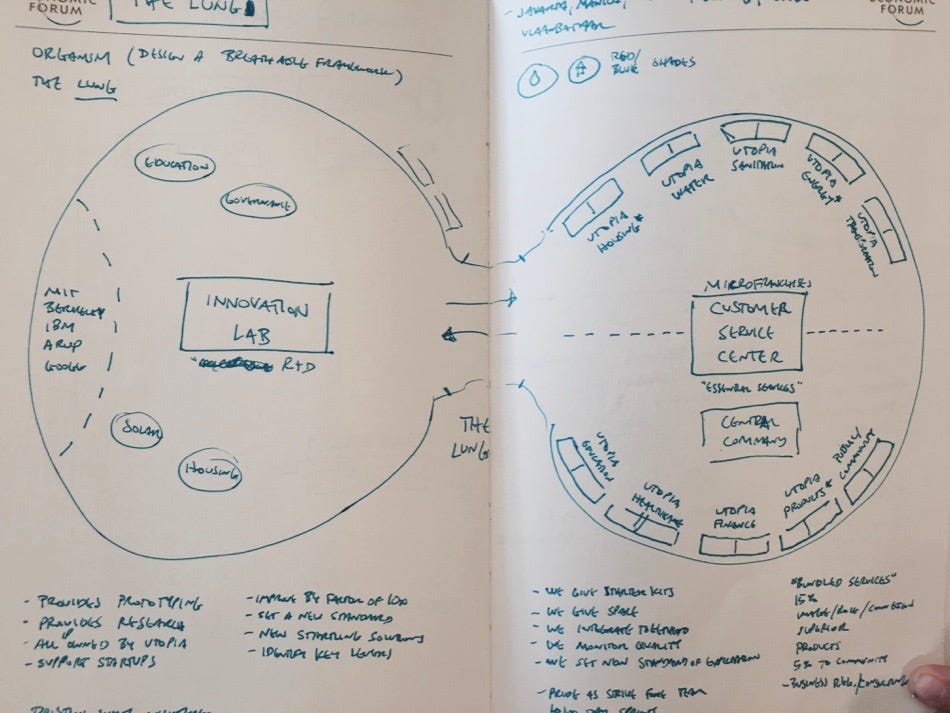 FORUM
THE LUNG
ORGANISM (DESIGN A BREATHABLE FRAMEWORK)
THE LUNG
EDUCATION
GOVERNANCE
MIT
BERKELEY
IBM
ARUP
GOOGLE
INNOVATION
LAB
R+D
SOLAR
HOUSING
THE
LUNG
- PROVIDES PROTOTYPING
- PROVIDES RESEARCH
- ALL OWNED BY UTOPIA
- SUPPORT STARTUPS
- IMPROVE BY FACTOR OF 10X
- SET A NEW STANDARD
- NEW STARTLING SOLUTIONS
- IDENTIFY KEY LEVERS
FORUM
- JAKARTA, MANILA,
ULAANBATAAR
RED/
BLUE SHADES
UTOPIA
HOUSING*
UTOPIA
WATER
UTOPIA
SANITATION
UTOPIA
ENERGY*
UTOPIA
MICROFRANCHISES
CUSTOMER
SERVICE
CENTER
"ESSENTIAL SERVICES"
CENTRAL
COMPANY
UTOPIA
EDUCATION
UTOPIA
HEALTHCARE
UTOPIA
FINANCE
UTOPIA
PRODUCTS*
COMMUNITY
- WE GIVE STARTER KITS
- WE GIVE SPACE
- WE INTEGRATE TOGETHER
- WE MONITOR QUALITY
- WE SET NEW STANDARD OF EXPECTATION
"BUNDLED SERVICES"
15%
SUPERIOR
PRODUCTS
5% TO COMMUNITY